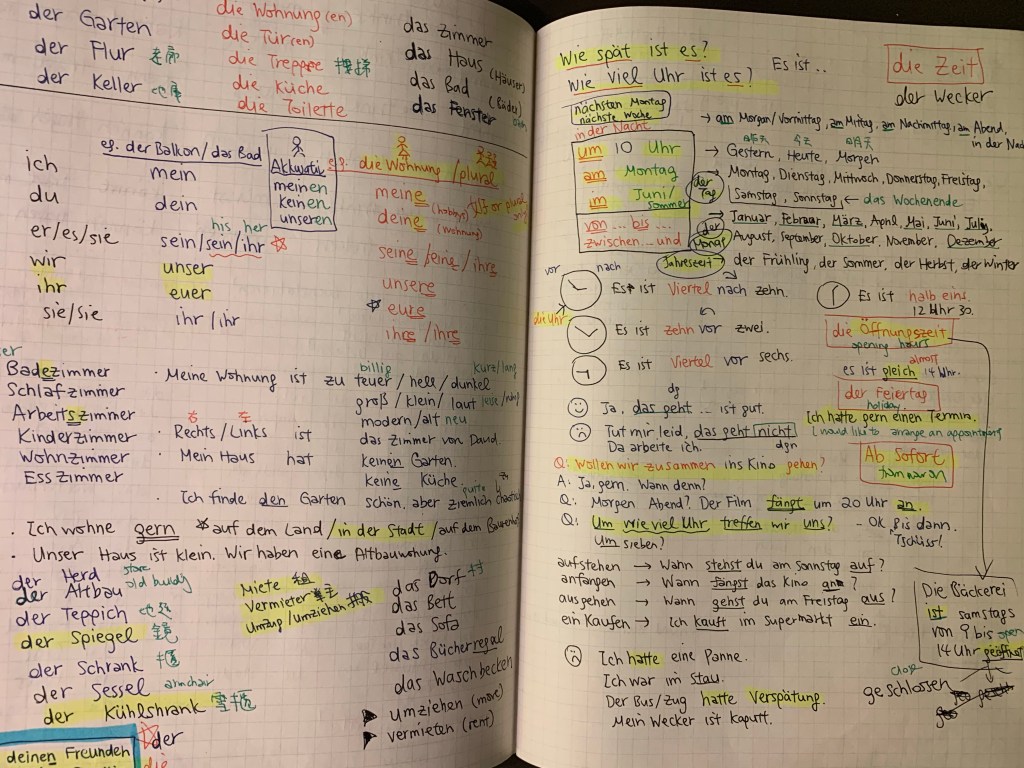 der Garten
der Flur 走廊
der Keller
die Wohnung(en)
die Tür(en)
die Treppe 摟梯
die Küche
die Toilette
das Zimmer
das Haus (Häuser)
das Bad (Bäder)
das Fenster
eg. der Balkon/das Bad
Akkusativ
e.g. die Wohnung/plural
ich mein meinen meine
du dein keinen deine (hobbys) (Wohnung)
unseren
his her
er/es/sie sein/sein/ihr seine/seine/ihre
wir unser unsere
ihr euer eure
sie/sie ihr/ihr ihre/ihre
Badezimmer
Schlafzimmer
Arbeitszimmer
Kinderzimmer
Wohnzimmer
Esszimmer
billig kurz/lang
· Meine Wohnung ist zu teuer/hell/dunkel
groß/klein/laut
modern/alt neu
右 左
· Rechts/Links ist das Zimmer von David.
· Mein Haus hat keinen Garten.
keine Küche.
quite
· Ich finde den Garten schön, aber ziemlich
· Ich wohne gern auf dem Land/in der Stadt/auf dem
· Unser Haus ist klein. Wir haben eine Altbauwohung.
der Herd
der Altbau old
der Teppich
der Spiegel 鏡
der Schrank
der Sessel armchair
der Kühlshrank
Miete 租
Vermieter
Umzug/umziehen 搬
das Dorf 村
das Bett
das Sofa
das Bücherregal
das Waschbecken
umziehen (move)
vermieten (rent)
deinen Freunden
der
die
Wie spät ist es?
Wie viel Uhr ist es?
Es ist ..
die Zeit
der Wecker
nächsten Montag
nächste Woche
in der Nacht
um 10 Uhr
am Montag
im Juni/
Sommer
von ... bis ...
zwischen ... und
→ am Morgen/Vormittag, am Mittag, am Nachmittag, am Abend,
in der Nacht
昨天 今天 明天
→ Gestern, Heute, Morgen
der Tag
→ Montag, Dienstag, Mittwoch, Donnerstag, Freistag,
Samstag, Sonnstag ← das Wochenende
der Monat
→ Januar, Februar, März, April, Mai, Juni, July,
August, September, Oktober, November, Dezember
Jahreszeit → der Frühling, der Sommer, der Herbst, der Winter
vor nach
Es ist Viertel nach zehn.
die Uhr
Es ist zehn vor zwei.
Es ist Viertel vor sechs.
Es ist halb eins.
12 Uhr 30.
die Öffnungszeit
opening hours
almost
es ist gleich 14 Uhr.
der Feiertag
holiday
Ja, das geht ... ist gut.
Tut mir leid, das geht nicht
Da arbeite ich.
Ich hatte gern einen Termin.
I would like to arrange an appointment
Ab Sofort
from now on
Q: Wollen wir zusammen ins Kino gehen?
A: Ja, gern. Wann denn?
Q: Morgen Abend? Der Film fängt um 20 Uhr an.
Q: Um wie viel Uhr treffen wir uns? - OK, Bis dann.
Um sieben? Tschüss!
aufstehen → Wann stehst du am Sonnstag auf?
anfangen → Wann fängst das Kino an?
ausgehen → Wann gehst du am Freistag aus?
ein Kaufen → Ich kauft im Supermarkt ein.
Die Bäckerei
ist samstags
von 9 bis
14 Uhr geöffnet
open
close
geschlossen
Ich hatte eine Panne.
Ich war im Stau.
Der Bus/Zug hatte Verspätung.
Mein Wecker ist kaputt.